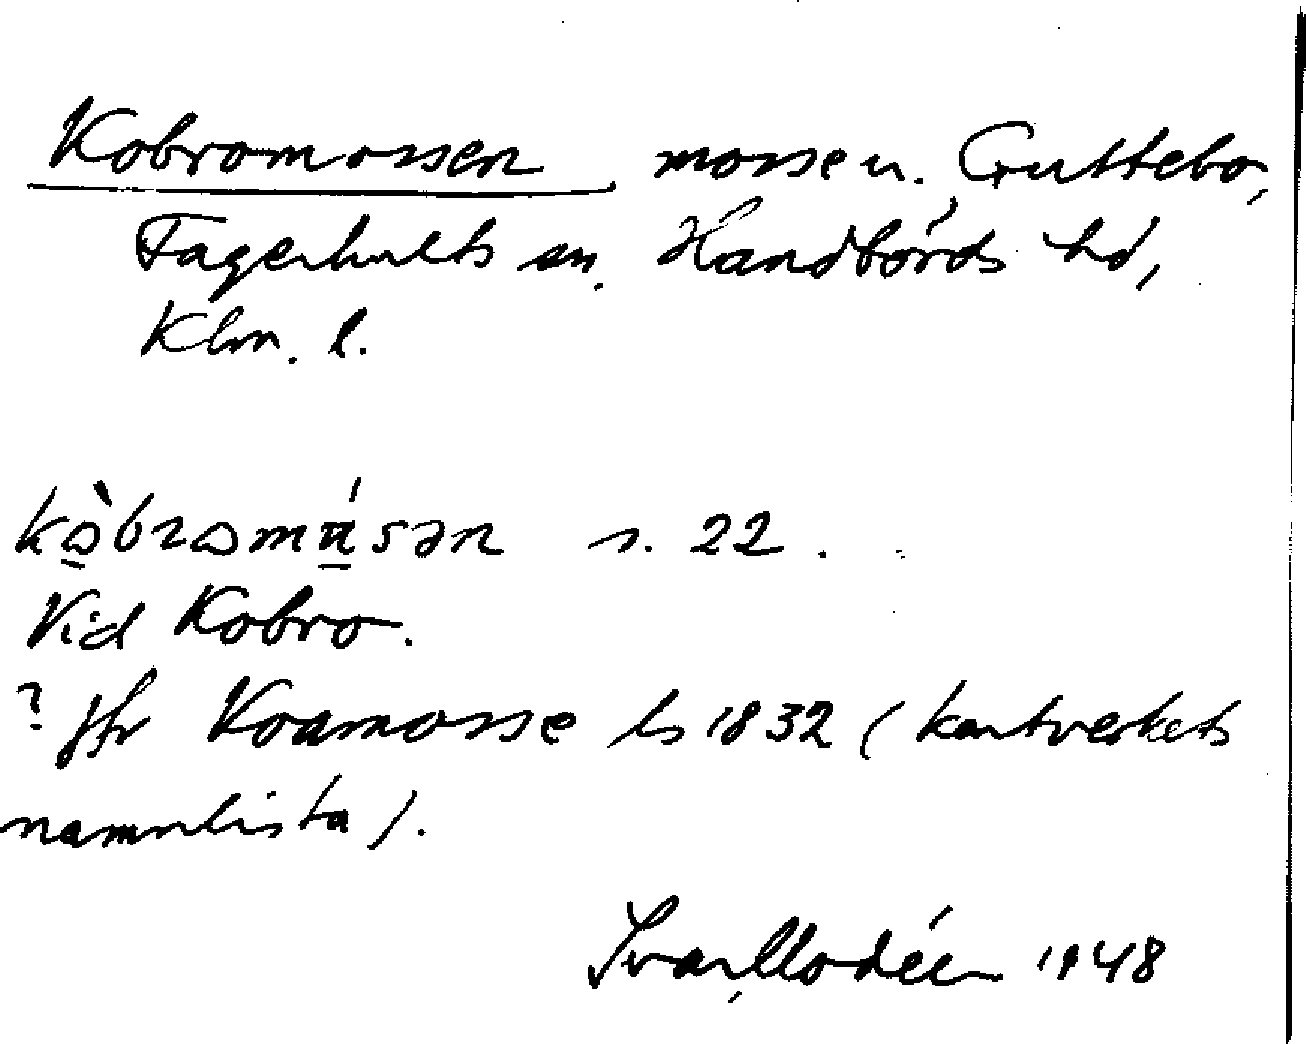 Kobromossen mosse u. Guttebo,
Fagerhults sn. Handbörds hd,
Klm. l.
s. 22.
Vid Kobro.
? Jfr Koamosse ls 1832 (kartverkets
namnlista).
Ivar Modéer 1948